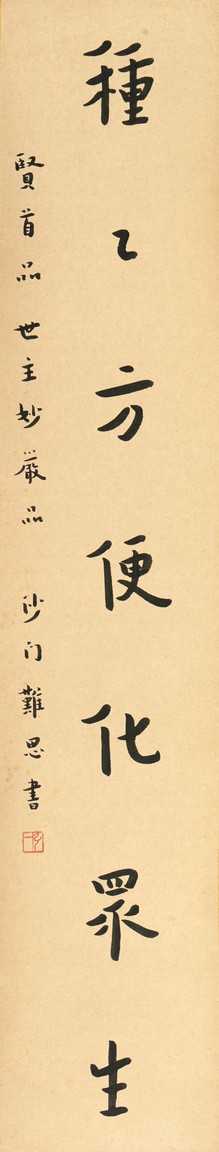 種々方便化眾生
賢首品 世主妙嚴品 沙门難思書